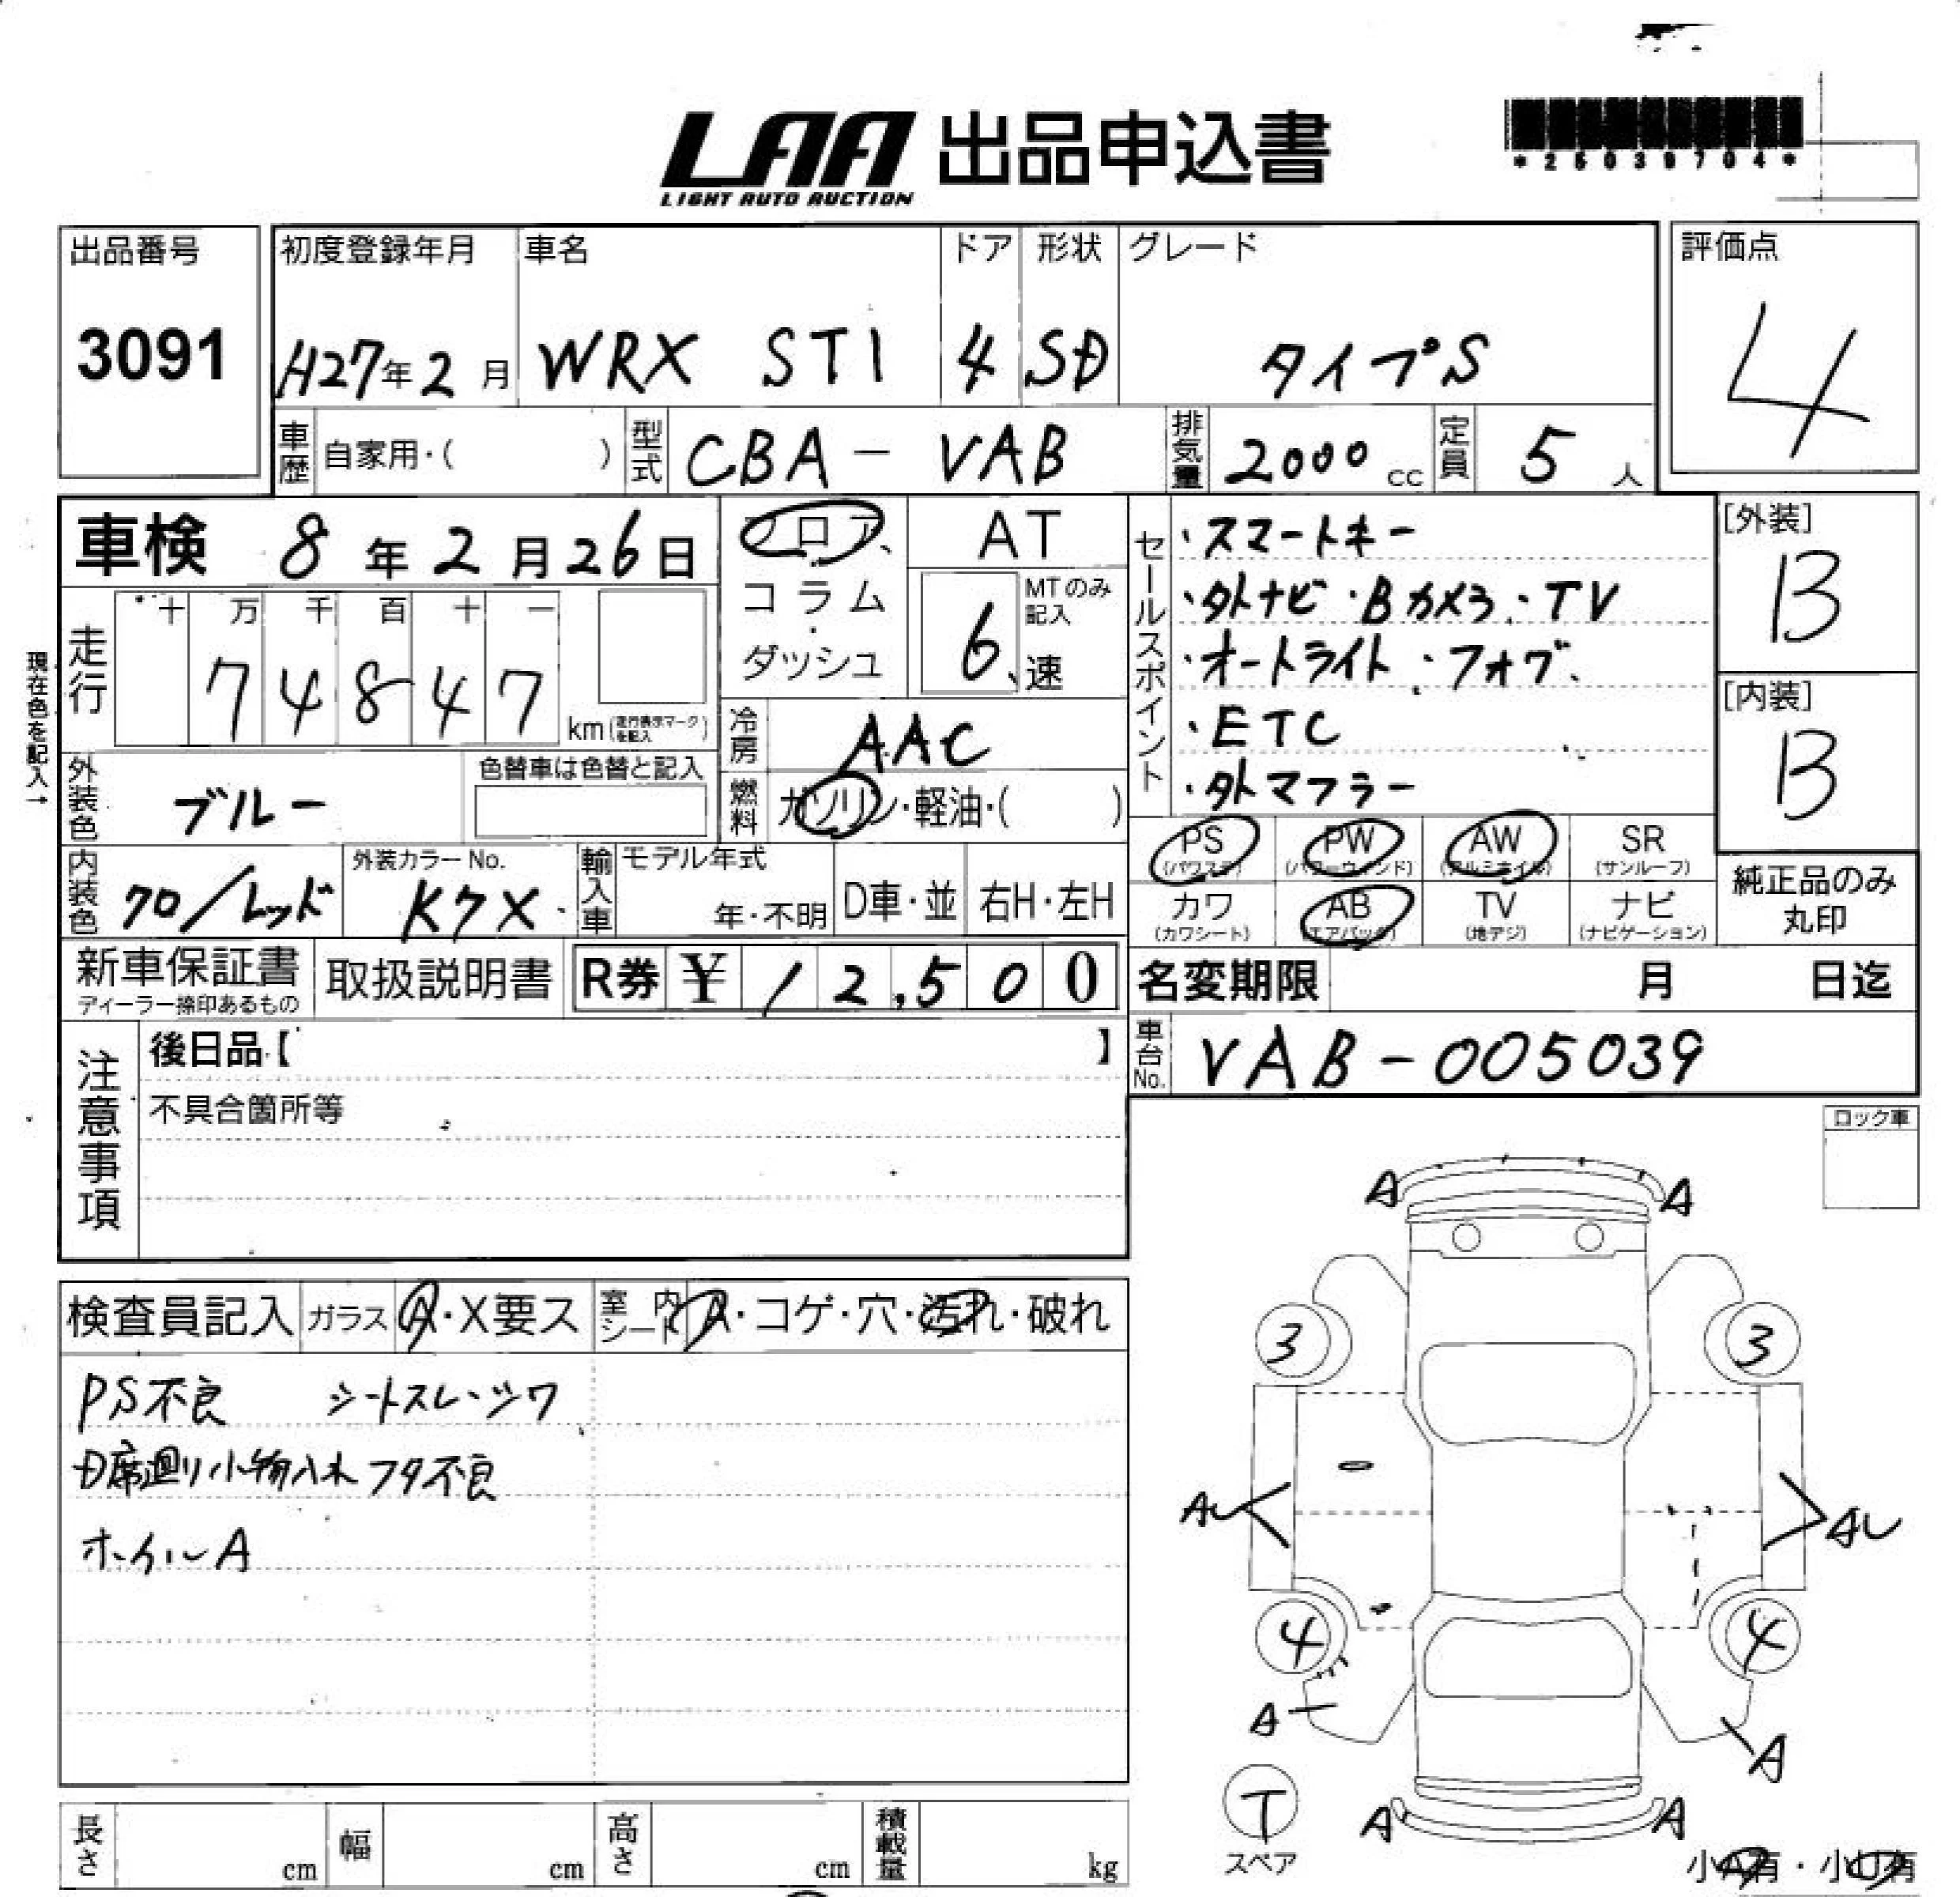 LAA 出品申込書
LIGHT AUTO AUCTION
*25039704*
出品番号
3091
初度登録年月
H27年2月
車名
WRX STI
ドア
4
形状
SD
グレード
タイプS
評価点
4
車歴 自家用・( )
型式 CBA-VAB
排気量 2000cc
定員 5人
車検 8年2月26日
フロア、
コラム
・
ダッシュ
AT
MTのみ記入
6速
現在色を記入→
走行
十 万 千 百 十 一
7 4 8 4 7 km(走行表示マークを記入)
冷房 AAC
外装色 ブルー
色替車は色替と記入
燃料 ガソリン・軽油・( )
セールスポイント
・スマートキー
・外ナビ・Bカメラ・TV
・オートライト・フォグ
・ETC
・外マフラー
[外装]
B
[内装]
B
内装色 クロ/レッド
外装カラーNo.
K7X
輸入車
モデル年式
年・不明
D車・並
右H・左H
PS (パワステ)
PW (パワーウインド)
AW (アルミホイル)
SR (サンルーフ)
カワ (カワシート)
AB (エアバッグ)
TV (地デジ)
ナビ (ナビゲーション)
純正品のみ
丸印
新車保証書
ディーラー捺印あるもの
取扱説明書
R券 ¥12,500
名変期限 月 日迄
車台No. VAB-005039
注意事項
後日品【 】
不具合箇所等
ロック車
検査員記入
ガラス A・X要ス
室内シート A・コゲ・穴・汚れ・破れ
PS不良 シートスレ・シワ
D席廻り小物入れフタ不良
ホイルA
A A
3 3
AU AU
4 4
A A
T
スペア
A A
小A有・小U有
長さ cm
幅 cm
高さ cm
積載量 kg